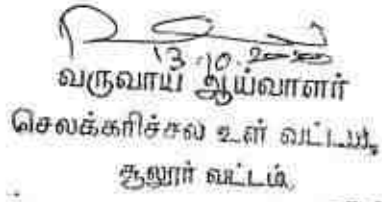 13.10.2020
வருவாய் ஆய்வாளர்
செலக்கரிச்சல் உள் வட்டம்,
சூலூர் வட்டம்.